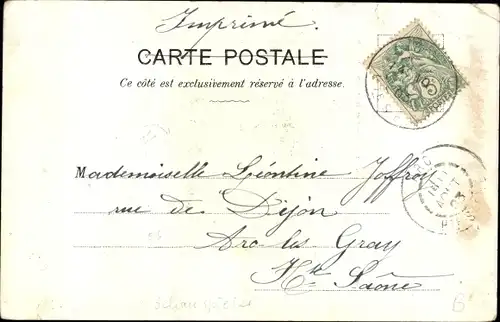 Imprimé.
CARTE POSTALE
Ce côté est exclusivement réservé à l'adresse.
Mademoiselle Léontine Joffroy
rue de Dijon
Arc les Gray
Hte Saône